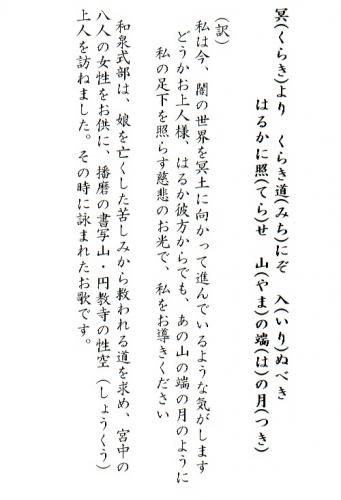 冥(くらき)より　くらき道(みち)にぞ　入(いり)ぬべき
はるかに照(てら)せ　山(やま)の端(は)の月(つき)
(訳)
私は今、闇の世界を冥土に向かって進んでいるような気がします
どうかお上人様、はるか彼方からでも、あの山の端の月のように
私の足下を照らす慈悲のお光で、私をお導きください
和泉式部は、娘を亡くした苦しみから救われる道を求め、宮中の
八人の女性をお供に、播磨の書写山・円教寺の性空(しょうくう)
上人を訪ねました。その時に詠まれたお歌です。